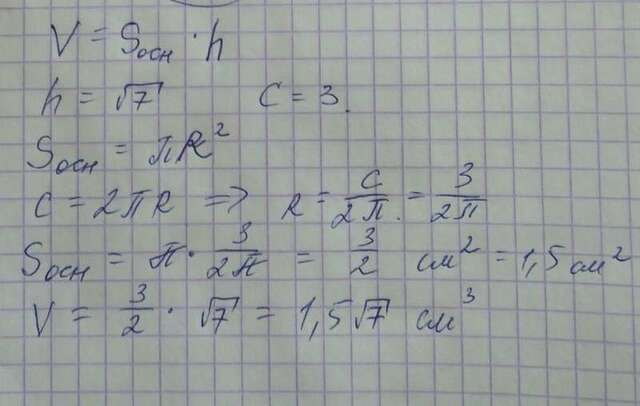 V = Sосн · h
h = √7 C = 3.
Sосн = πR²
C = 2πR => R = C/2π = 3/2π
Sосн = π · 3/2π = 3/2 см² = 1,5 см²
V = 3/2 · √7 = 1,5√7 см³